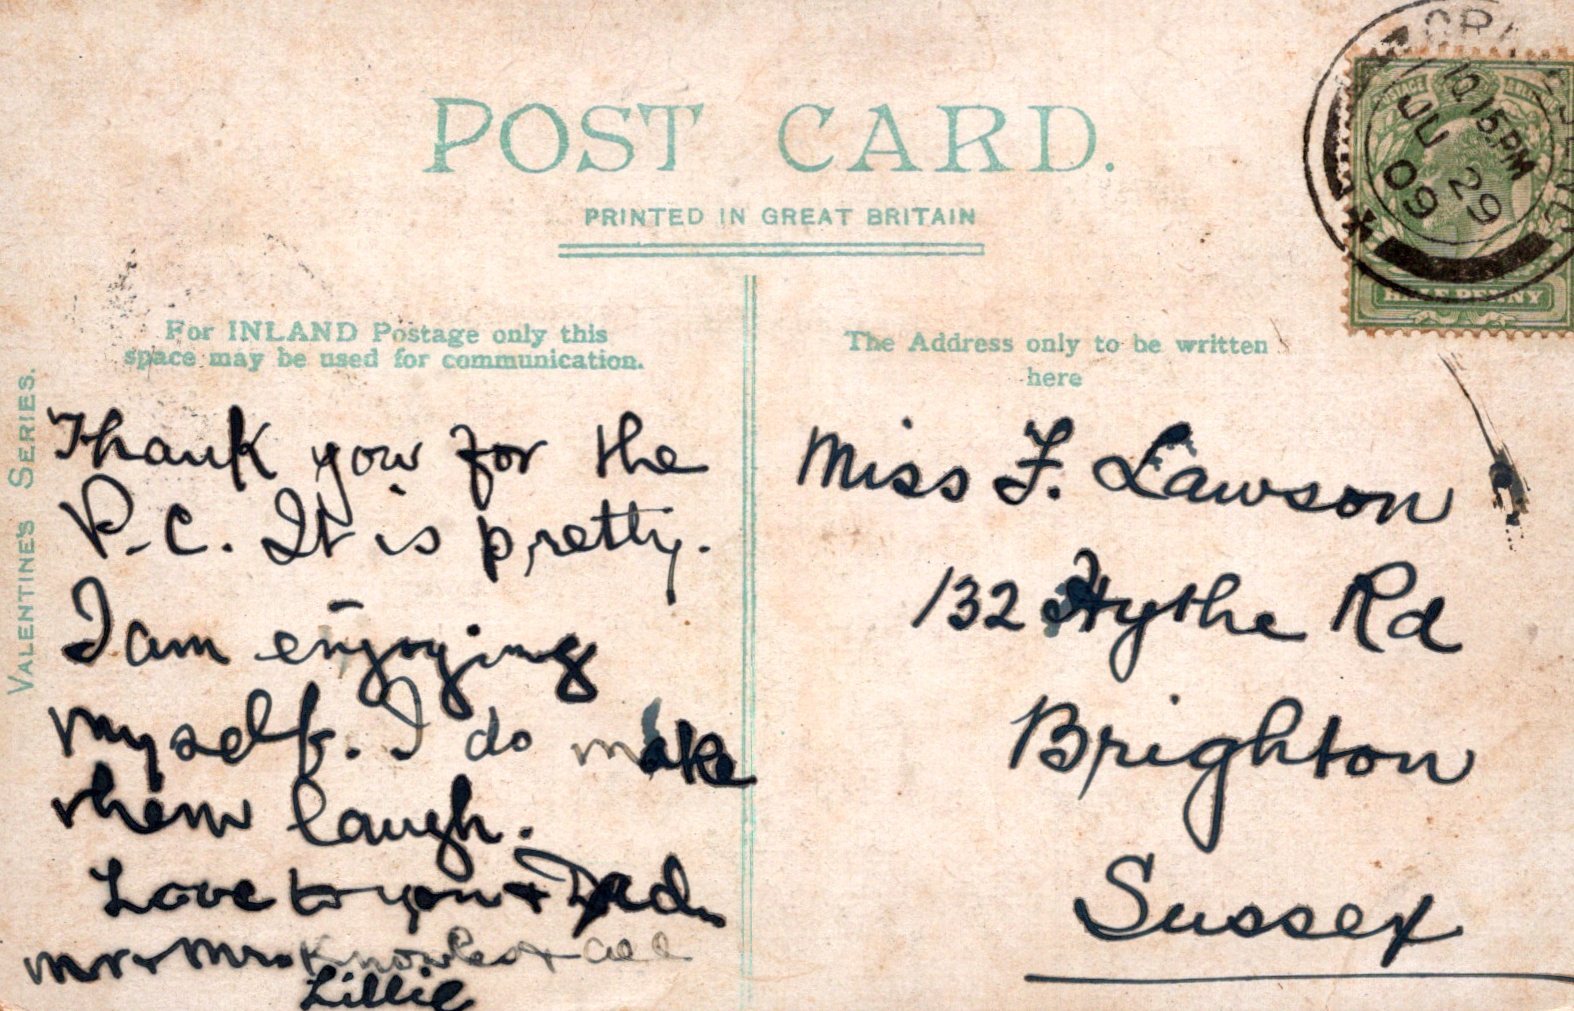 POST CARD.
PRINTED IN GREAT BRITAIN
For INLAND Postage only this
space may be used for communication.
The Address only to be written
here
VALENTINE'S SERIES.
Thank you for the
P.C. It is pretty.
I am enjoying
myself. I do make
them laugh.
Love to you + Dad
Mr + Mrs Knowles + all
Lillie
Miss F. Lawson
132 Hythe Rd
Brighton
Sussex
10 15 PM
JU 29
09
HALF PENNY